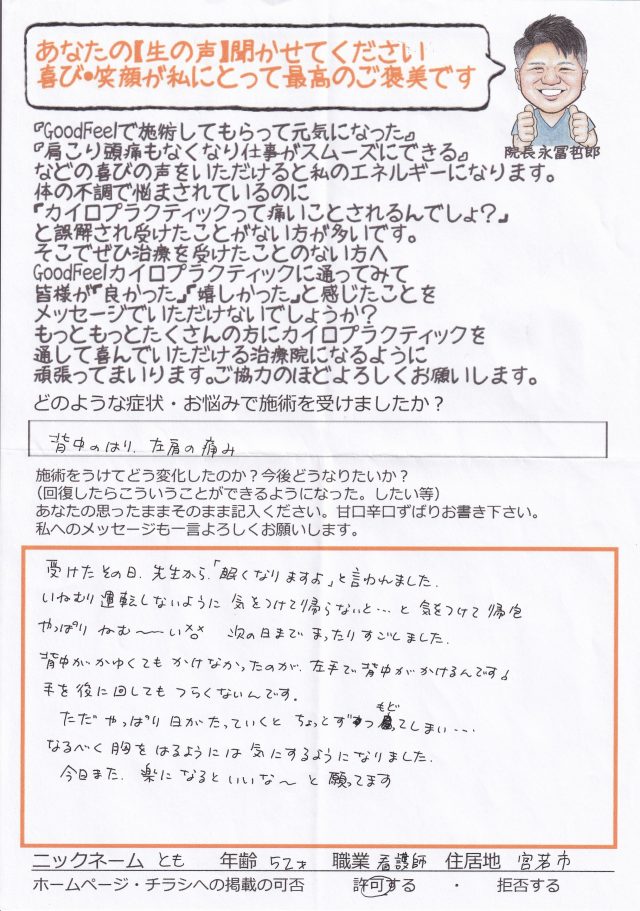 あなたの【生の声】聞かせてください
喜び•笑顔が私にとって最高のご褒美です
院長 永冨哲郎
『GoodFeelで施術してもらって元気になった』
『肩こり頭痛もなくなり仕事がスムーズにできる』
などの喜びの声をいただけると私のエネルギーになります。
体の不調で悩まされているのに
『カイロプラクティックって痛いことされるんでしょ?』
と誤解され受けたことがない方が多いです。
そこでぜひ治療を受けたことのない方へ
GoodFeelカイロプラクティックに通ってみて
皆様が『良かった』『嬉しかった』と感じたことを
メッセージでいただけないでしょうか?
もっともっとたくさんの方にカイロプラクティックを
通して喜んでいただける治療院になるように
頑張ってまいります。ご協力のほどよろしくお願いします。
どのような症状・お悩みで施術を受けましたか?
背中のはり、左肩の痛み
施術をうけてどう変化したのか?今後どうなりたいか?
(回復したらこういうことができるようになった。したい等)
あなたの思ったままそのまま記入ください。甘口辛口ずばりお書き下さい。
私へのメッセージも一言よろしくお願いします。
受けたその日、先生から、「眠くなりますよ」と言われました。
いねむり運転しないように 気をつけて帰らないと…と 気をつけて帰宅
やっぱり ねむ〜〜い 次の日まで まったりすごしました。
背中がかゆくても かけなかったのが、左手で背中がかけるんです♪
手を後に回しても つらくないんです。
ただ やっぱり 日がたっていくと ちょっとずつ もどってしまい…
なるべく 胸を はるようには 気にするようになりました。
今日また、楽に なると いいな〜 と 願ってます
ニックネーム とも 年齢 52才 職業 看護師 住居地 宮若市
ホームページ・チラシへの掲載の可否 許可する ・ 拒否する